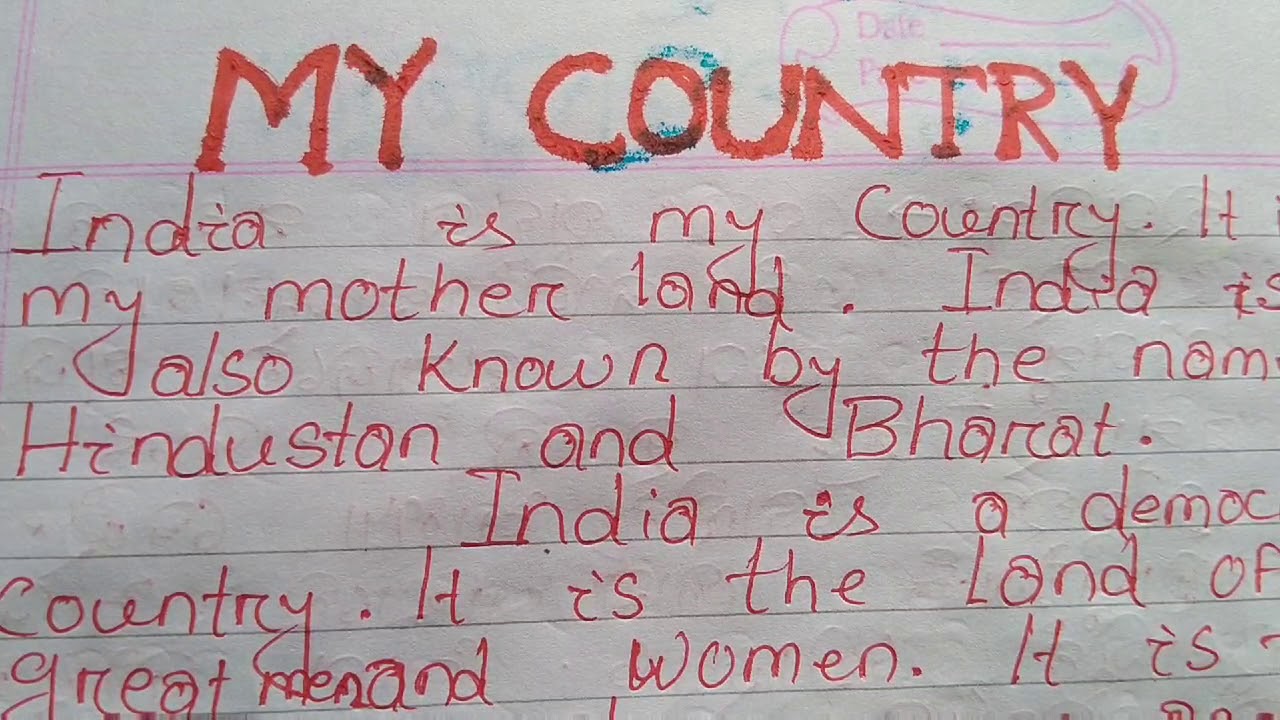 Date
MY COUNTRY
India is my Country. It
my mother land. India is
also known by the nam
Hindustan and Bharat.
India is a democ
Country. It is the Land of
great men and women. It is